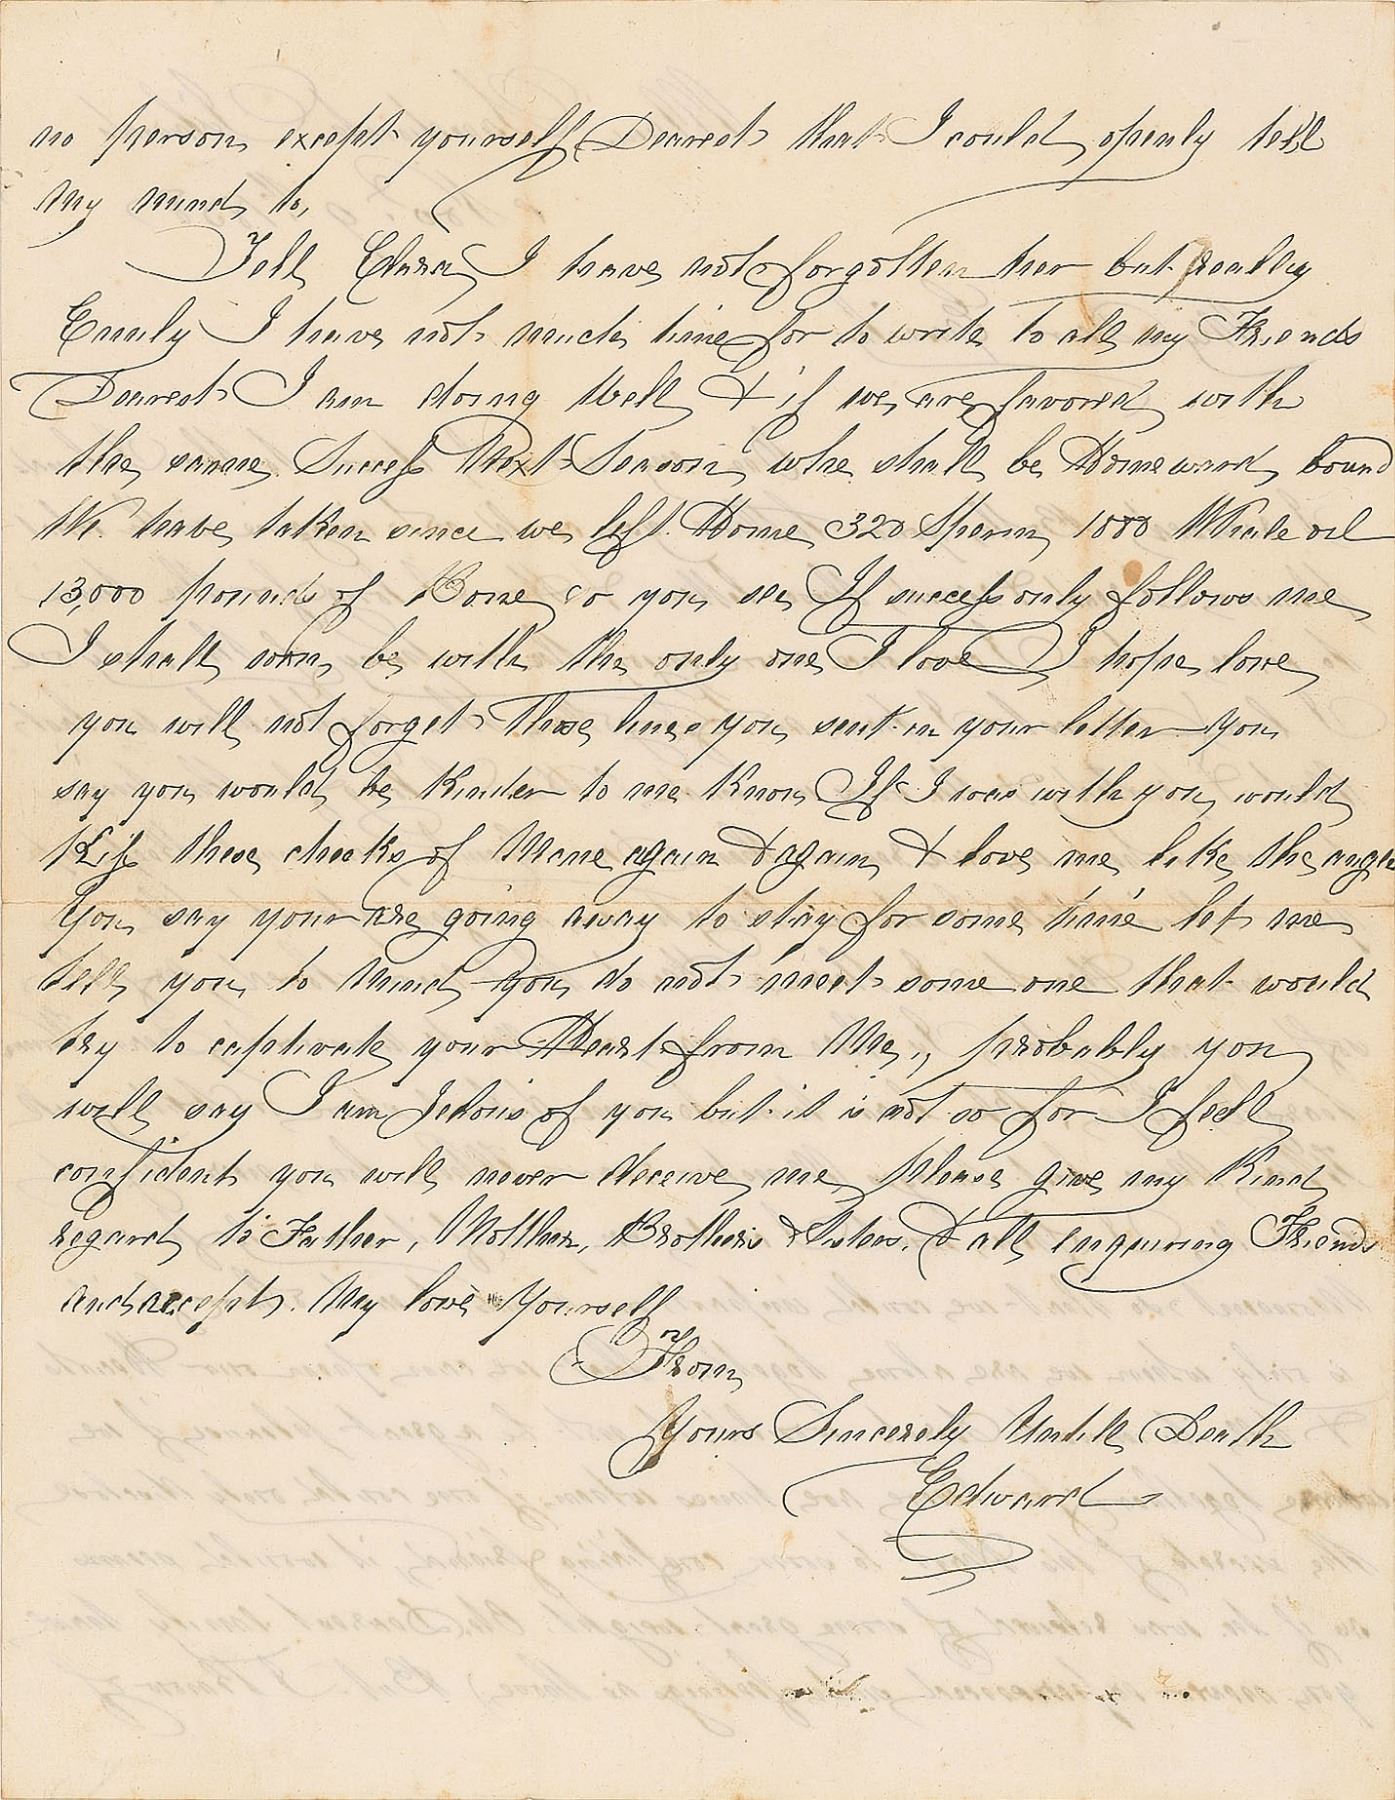 no person except yourself Dearest that I could openly tell
my mind to,
Tell Clara I have not forgotten her but really
Emily I have not much time for to write to all my Friends
Dearest I am doing Well & if we are favored with
the same Success Next Season whe shall be Homeward bound
We have taken since we left Home 320 Sperm 1000 Whale oil
13,000 pounds of Bone so you see If success only follows me
I shall soon be with the only one I love I hope love
you will not forget those lines you sent in your letter you
say you would be kinder to me know If I was with you would
Kiss these cheeks of Mine again & again & love me like the angels
You say your are going away to stay for some time let me
tell you to mind you do not meet some one that would
try to captivate your Heart from Me,, probably you
will say I am Jelous of you but it is not so for I feel
confident you will never deceive me please give my Kind
regard to Father, Mother, Brothers & Sisters. & all enquiring Friends
and accept. My love Yourself
From
Yours Sincerely Untill Death
Edward